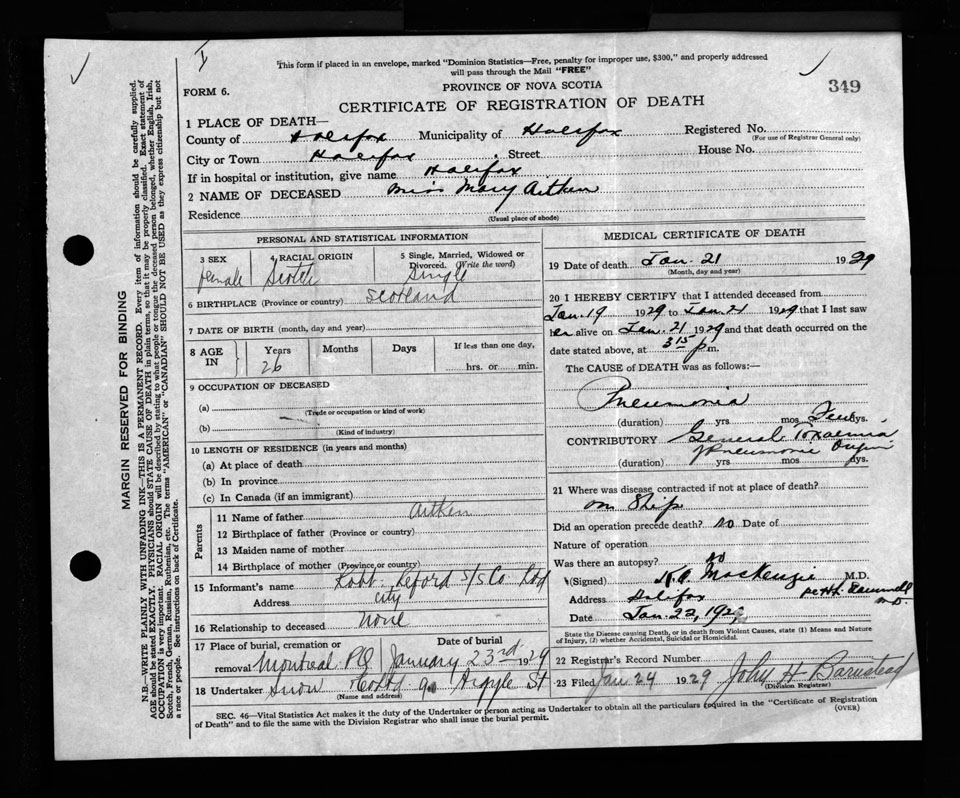 This form if placed in an envelope, marked "Dominion Statistics—Free, penalty for improper use, $300," and properly addressed
will pass through the Mail "FREE"
FORM 6.
PROVINCE OF NOVA SCOTIA
349
CERTIFICATE OF REGISTRATION OF DEATH
1 PLACE OF DEATH—
County of Halifax Municipality of Halifax Registered No.
(For use of Registrar General only)
City or Town Halifax, Street House No.
If in hospital or institution, give name Halifax
2 NAME OF DECEASED Miss Mary Aitken
Residence
(Usual place of abode)
PERSONAL AND STATISTICAL INFORMATION
3 SEX 4 RACIAL ORIGIN 5 Single, Married, Widowed or
Divorced. (Write the word)
female Scotch Single
6 BIRTHPLACE (Province or country) Scotland
7 DATE OF BIRTH (month, day and year)
8 AGE IN Years Months Days If less than one day,
26 hrs. or min.
9 OCCUPATION OF DECEASED
(a)
(Trade or occupation or kind of work)
(b)
(Kind of industry)
10 LENGTH OF RESIDENCE (in years and months)
(a) At place of death
(b) In province
(c) In Canada (if an immigrant)
Parents
11 Name of father Aitken
12 Birthplace of father (Province or country)
13 Maiden name of mother
14 Birthplace of mother (Province or country)
15 Informant's name Robt. Reford S/S Co Ltd
Address City
16 Relationship to deceased None
17 Place of burial, cremation or Date of burial
removal Montreal PQ January 23rd 1929
18 Undertaker Snow Co Ltd 90 Argyle St
(Name and address)
MEDICAL CERTIFICATE OF DEATH
19 Date of death Jan. 21 1929
(Month, day and year)
20 I HEREBY CERTIFY that I attended deceased from
Jan. 19 1929 to Jan. 21 1929 that I last saw
her alive on Jan. 21 1929 and that death occurred on the
date stated above, at 3 15 p m.
The CAUSE of DEATH was as follows:—
Pneumonia
(duration) yrs mos dys.
CONTRIBUTORY General Toxaemia
Pneumonic Origin
(duration) yrs mos dys.
21 Where was disease contracted if not at place of death?
on Ship
Did an operation precede death? no Date of
Nature of operation
Was there an autopsy? no
(Signed) MacKenzie M.D.
Address Halifax per H.
Date Jan. 22, 1929
State the Disease causing Death, or in death from Violent Causes, state (1) Means and Nature
of Injury, (2) whether Accidental, Suicidal or Homicidal.
22 Registrar's Record Number
23 Filed Jan 24 1929 John H Barnstead
(Division Registrar)
SEC. 46—Vital Statistics Act makes it the duty of the Undertaker or person acting as Undertaker to obtain all the particulars required in the "Certificate of Registration
of Death" and to file the same with the Division Registrar who shall issue the burial permit.
(OVER)
MARGIN RESERVED FOR BINDING
N.B.—WRITE PLAINLY WITH UNFADING INK—THIS IS A PERMANENT RECORD. Every item of information should be carefully supplied.
AGE should be stated EXACTLY. PHYSICIANS should STATE CAUSE OF DEATH in plain terms, so that it may be properly classified. Exact statement of
OCCUPATION is very important. RACIAL ORIGIN will be described by stating to what people or tongue the deceased person belonged, whether English, Irish,
Scotch, French, German, Russian, Ruthenian, etc. The terms "AMERICAN" or "CANADIAN" SHOULD NOT BE USED as they express citizenship but not
a race or people. See instructions on back of Certificate.